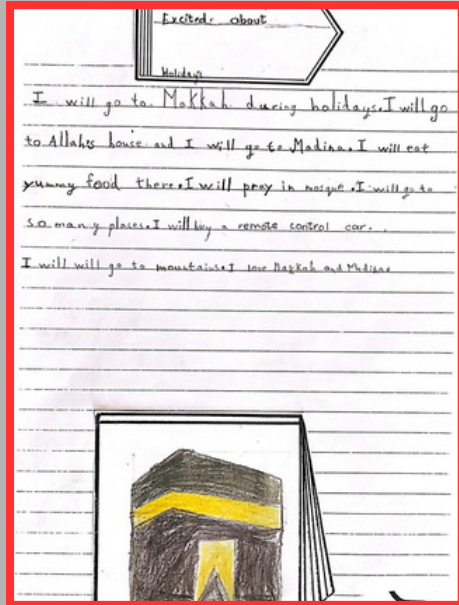 Excited about
Holidays
I will go to Makkah during holidays. I will go
to Allah's house and I will go to Madina. I will eat
yummy food there. I will pray in mosque. I will go to
so many places. I will buy a remote control car.
I will will go to mountains. I love Makkah and Madina